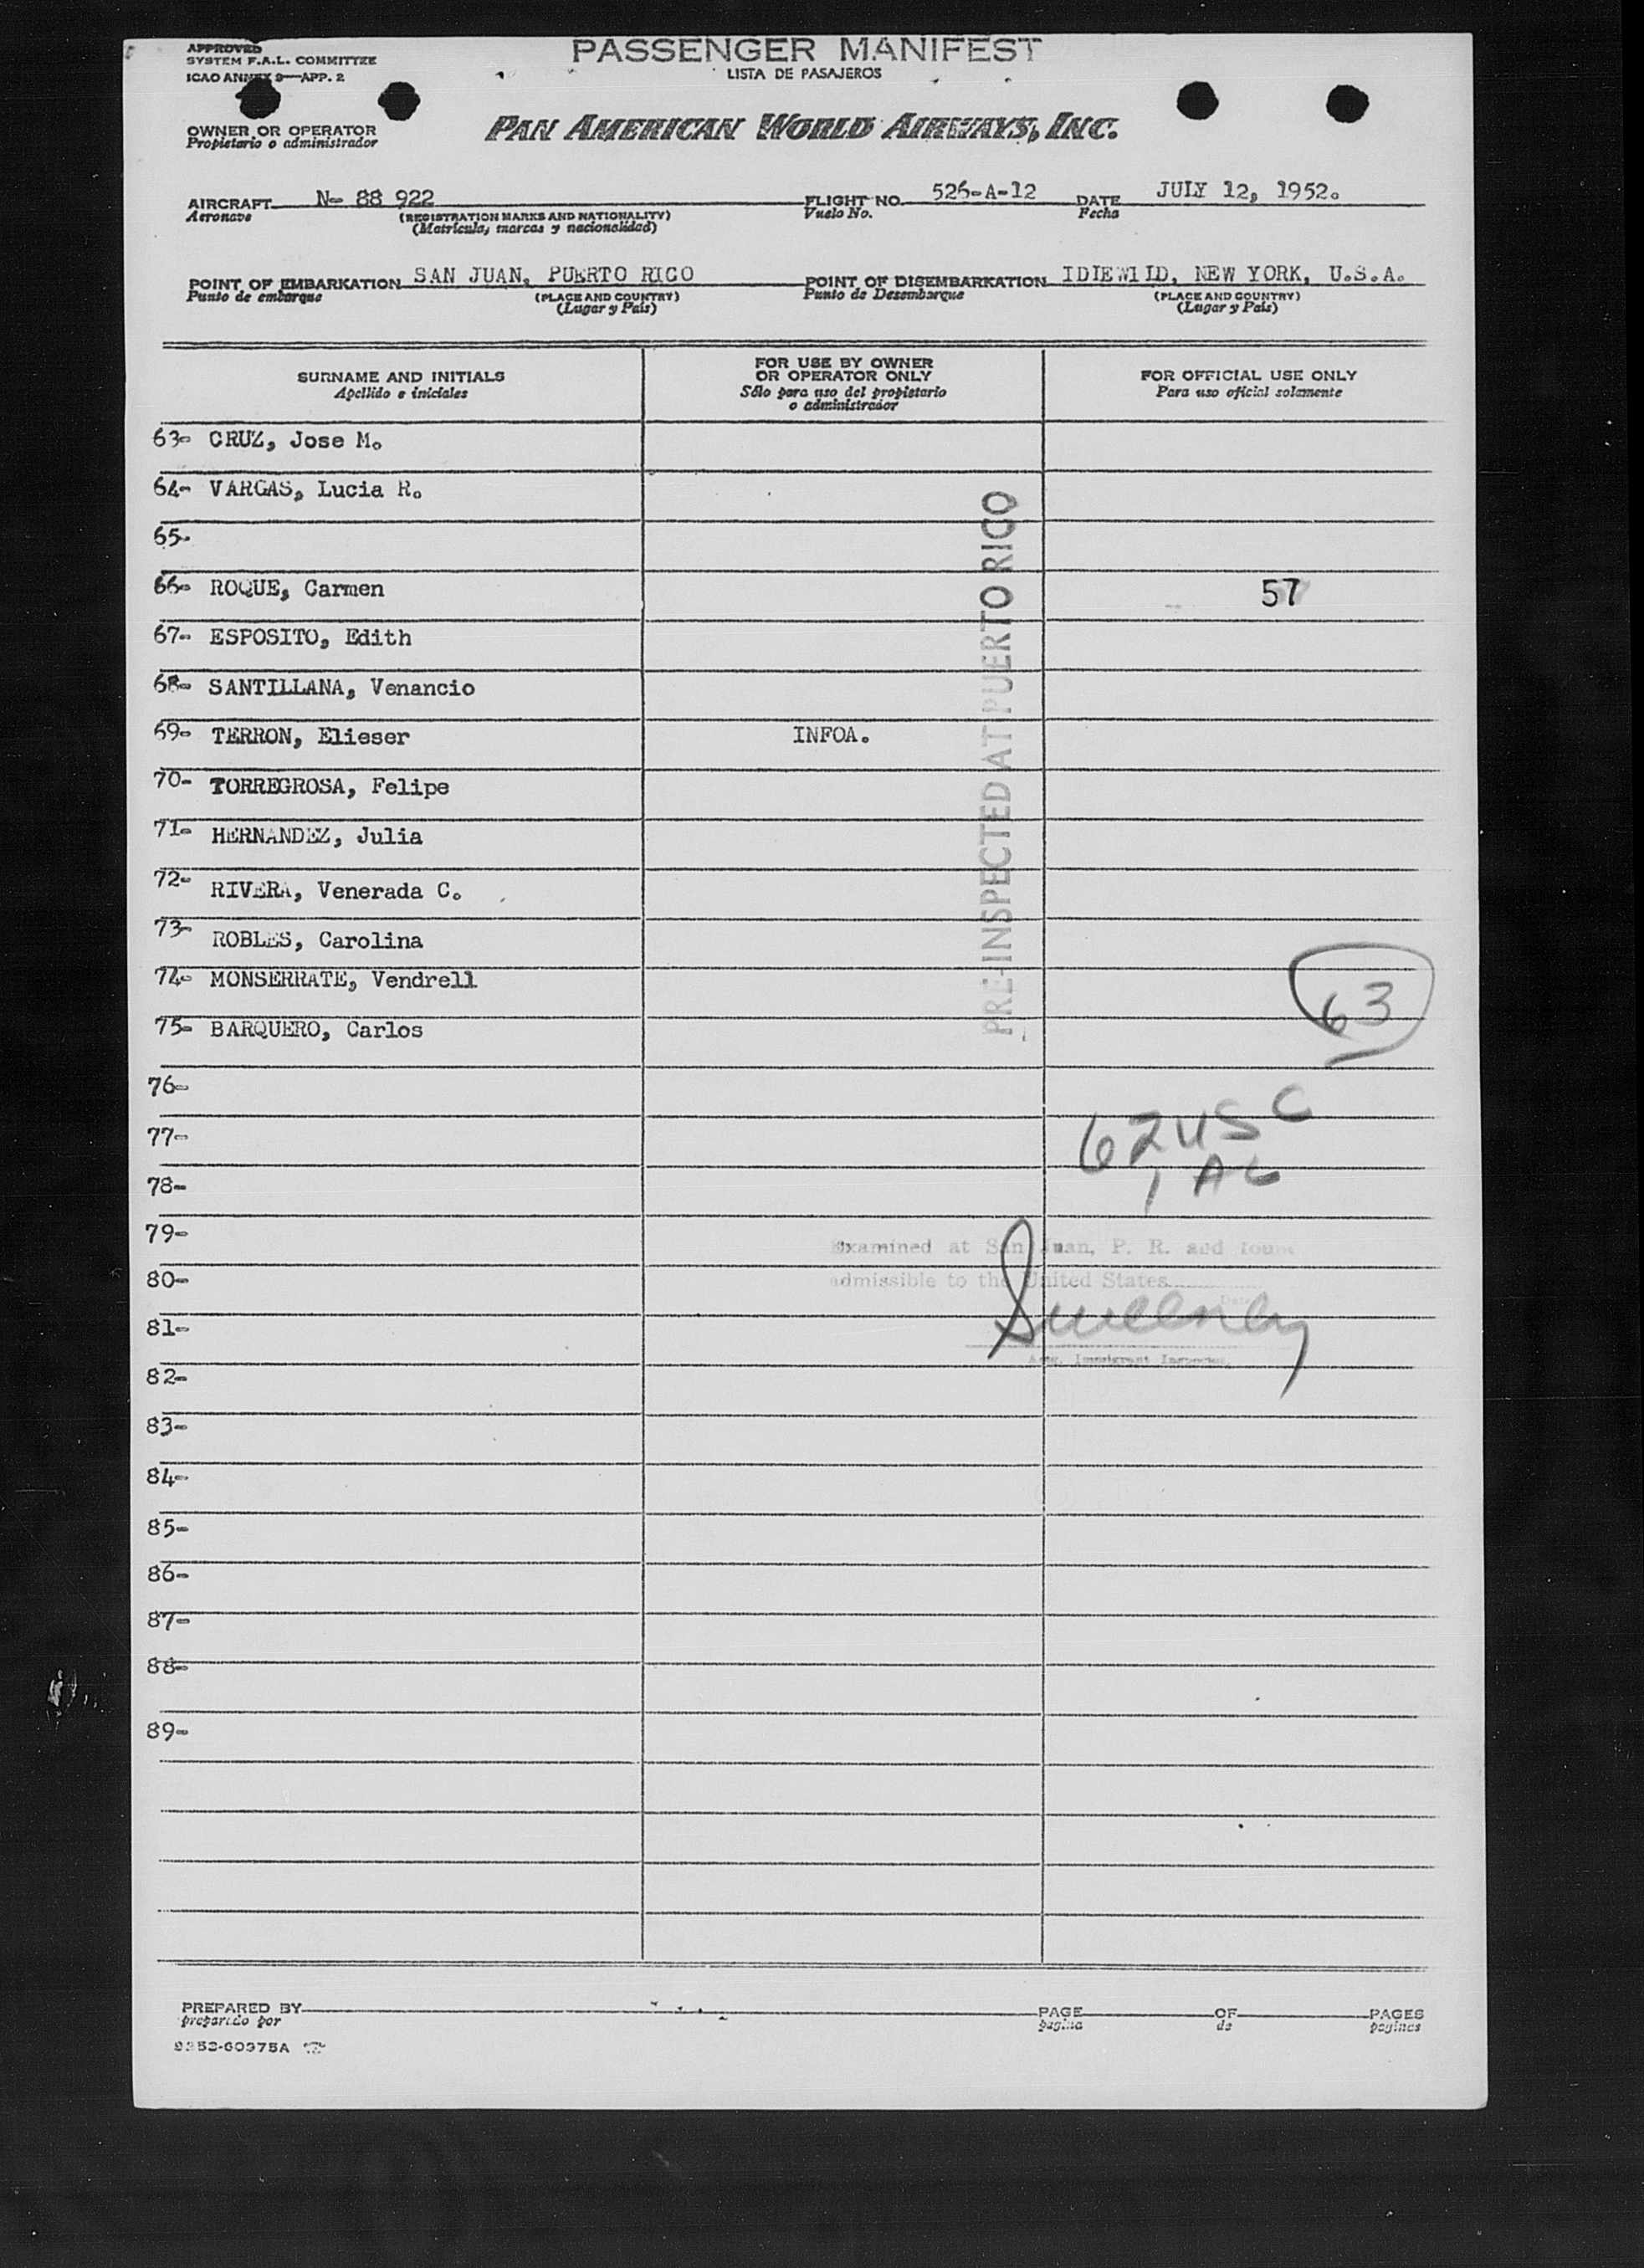 APPROVED
SYSTEM F.A.L. COMMITTEE
ICAO ANNEX 9—APP. 2
PASSENGER MANIFEST
LISTA DE PASAJEROS
OWNER OR OPERATOR
Propietario o administrador
PAN AMERICAN WORLD AIRWAYS, INC.
AIRCRAFT N- 88 922 FLIGHT NO. 526-A-12 DATE JULY 12, 1952.
Aeronave (REGISTRATION MARKS AND NATIONALITY) Vuelo No. Fecha
(Matrícula, marcas y nacionalidad)
POINT OF EMBARKATION SAN JUAN, PUERTO RICO POINT OF DISEMBARKATION IDIEW1ID, NEW YORK, U.S.A.
Punto de embarque (PLACE AND COUNTRY) Punto de Desembarque (PLACE AND COUNTRY)
(Lugar y País) (Lugar y País)
SURNAME AND INITIALS
Apellido e iniciales
FOR USE BY OWNER
OR OPERATOR ONLY
Sólo para uso del propietario
o administrador
FOR OFFICIAL USE ONLY
Para uso oficial solamente
63- CRUZ, Jose M.
64- VARGAS, Lucia R.
65-
66- ROQUE, Carmen 57
67- ESPOSITO, Edith
68- SANTILLANA, Venancio
69- TERRON, Elieser INFOA.
70- TORREGROSA, Felipe
71- HERNANDEZ, Julia
72- RIVERA, Venerada C.
73- ROBLES, Carolina
74- MONSERRATE, Vendrell
75- BARQUERO, Carlos
PRE-INSPECTED AT PUERTO RICO
63
76-
77-
62 USC
78-
1 AC
79-
Examined at San Juan, P. R. and foun
80-
admissible to the United States
Date
81-
Sweeney
Actg. Immigrant Inspector
82-
83-
84-
85-
86-
87-
88-
89-
PREPARED BY PAGE OF PAGES
preparado por página de páginas